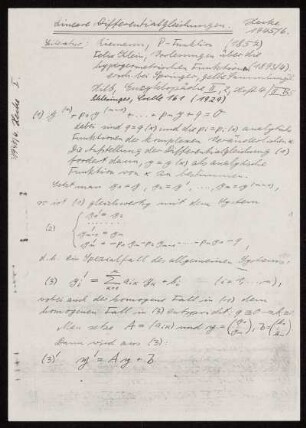 Lineare Differentialgleichungen.
Hecke
1945/6.
Literatur: Riemann, P-Funktion (1857)
Felix Klein, Vorlesungen über die
hypergeometrischen Funktionen (1893/4)
auch bei Springer, gelbe Sammlung
Hilb, Enzyklopädie II, 2, Heft 4, II B
Schlesinger, Crelle (1924)
(1) y^(n) + p₁y^(n-1) + ... + pₙy = 0.
Dabei sind y = y(x) und die pᵢ = pᵢ(x) analytische
Funktionen der komplexen Veränderlichen x.
Die Aufstellung der Differentialgleichung (1)
fordert dann, y = y(x) als analytische
Funktion von x zu bestimmen.
Setzt man y₁ = y, y₂ = y', ... yₙ = y^(n-1),
so ist (1) gleichwertig mit dem System
(2) { y₁' = y₂
yₙ' = -p₁yₙ - p₂yₙ₋₁ ... - pₙy₁,
d.h. ein Spezialfall des allgemeinen Systems:
(3) yᵢ' = Σ aᵢₖ yₖ + bᵢ (i = 1, ..., n),
wobei auch der homogene Fall in (3) dem
homogenen Fall in (3) entspricht
Man setze A = (aᵢₖ) und y = (y₁ yₙ), b = (b₁ bₙ)
Dann wird aus (3):
(3)' y' = Ay + b
1945/6 Hecke I.